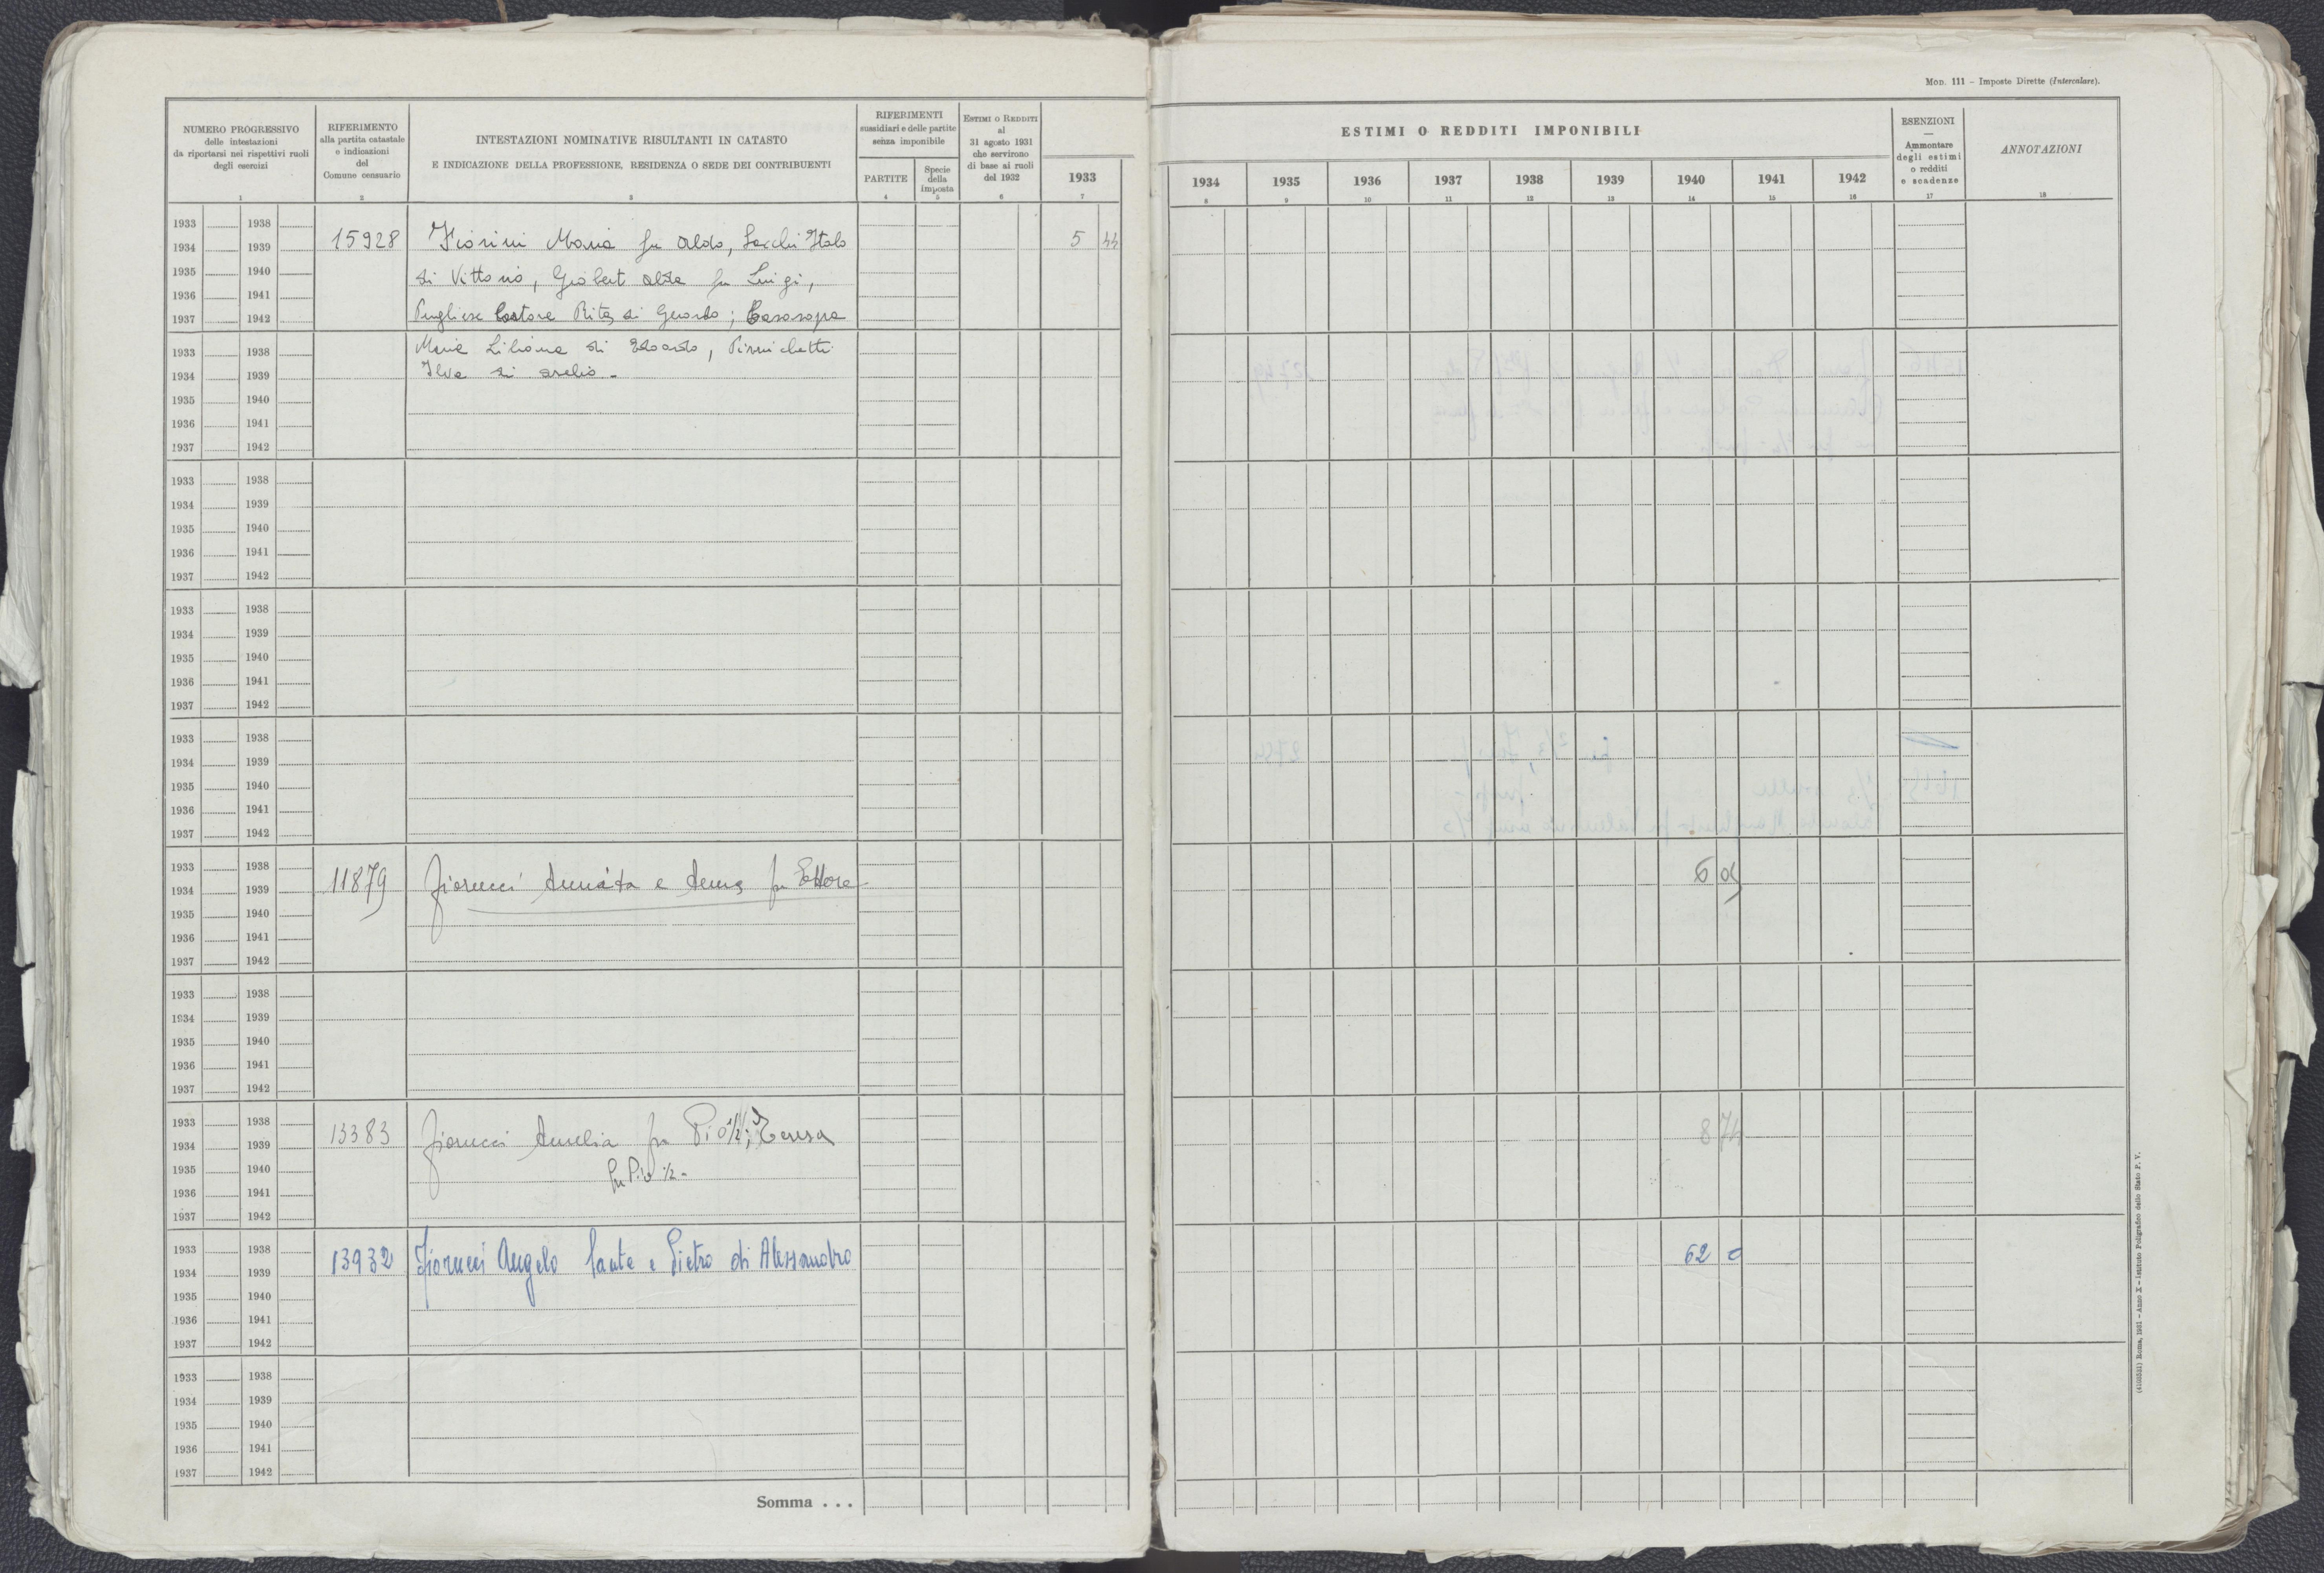 MOD. 111 – Imposte Dirette (Intercalare).
NUMERO PROGRESSIVO
delle intestazioni
da riportarsi nei rispettivi ruoli
degli esercizi
1
RIFERIMENTO
alla partita catastale
e indicazioni
del
Comune censuario
2
INTESTAZIONI NOMINATIVE RISULTANTI IN CATASTO
E INDICAZIONE DELLA PROFESSIONE, RESIDENZA O SEDE DEI CONTRIBUENTI
3
RIFERIMENTI
sussidiari e delle partite
senza imponibile
PARTITE
4
Specie
della
imposta
5
ESTIMI O REDDITI
al
31 agosto 1931
che servirono
di base ai ruoli
del 1932
6
ESTIMI O REDDITI IMPONIBILI
1933 1934 1935 1936 1937 1938 1939 1940 1941 1942
7 8 9 10 11 12 13 14 15 16
ESENZIONI
—
Ammontare
degli estimi
o redditi
e scadenze
17
ANNOTAZIONI
18
1933 1938
1934 1939 15928 Fiorini Maria fu Aldo, Sacchi Italo 5 44
1935 1940 di Vittorio, Giobert Alda fu Luigi,
1936 1941
1937 1942 Pugliese Rita di
1933 1938 Maria Liliana di Edoardo,
1934 1939 Ilva di
1935 1940
1936 1941
1937 1942
1933 1938
1934 1939
1935 1940
1936 1941
1937 1942
1933 1938
1934 1939
1935 1940
1936 1941
1937 1942
1933 1938
1934 1939
1935 1940
1936 1941
1937 1942
1933 1938
1934 1939 11879 Fiorucci e fu Ettore 6
1935 1940
1936 1941
1937 1942
1933 1938
1934 1939
1935 1940
1936 1941
1937 1942
1933 1938
1934 1939 13383 Fiorucci Amelia fu Pio 1/2; Teresa 8 74
1935 1940 fu Pio 1/2 -
1936 1941
1937 1942
1933 1938
1934 1939 13932 Fiorucci Angelo Sante e Pietro di Alessandro 62 0
1935 1940
1936 1941
1937 1942
1933 1938
1934 1939
1935 1940
1936 1941
1937 1942
Somma . . .
(4103331) Roma, 1931 – Anno X – Istituto Poligrafico dello Stato P. V.